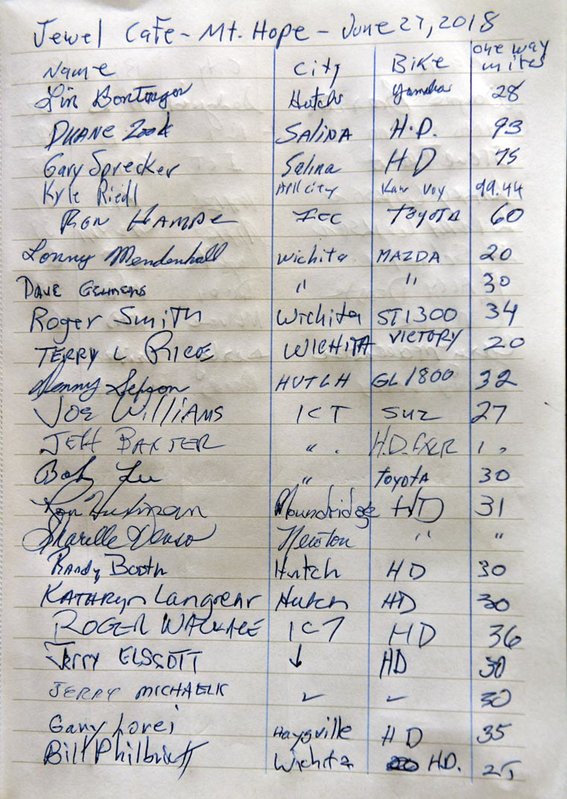 Jewel Cafe - Mt. Hope - June 27, 2018
Name City Bike one way miles
Hutch Yamaha 28
DUANE Zook SALINA H.D. 93
Gary Sprecker Salina HD 75
Kyle Riedl Kaw Voy 99.44
RON HAMPE ICC TOYOTA 60
Lonny Mendenhall Wichita MAZDA 20
DAVE " " 30
Roger Smith Wichita ST1300 34
TERRY L WICHITA VICTORY 20
HUTCH GL1800 32
JOE WILLIAMS ICT SUZ 27
JEFF BAXTER " H.D. FXR "
Bob " TOYOTA 30
Ron Moundridge HD 31
Newton " "
Randy Booth Hutch HD 30
KATHRYN Langrehr Hutch HD 30
ROGER WALLACE ICT HD 36
JERRY ↓ HD 30
JERRY ✓ ✓ 30
Gary Lorei Haysville HD 35
Bill Philbrick Wichita HD. 25